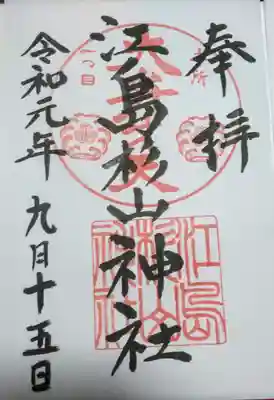 奉拝
江島杉山神社
令和元年九月十五日
江島
杉山
神社